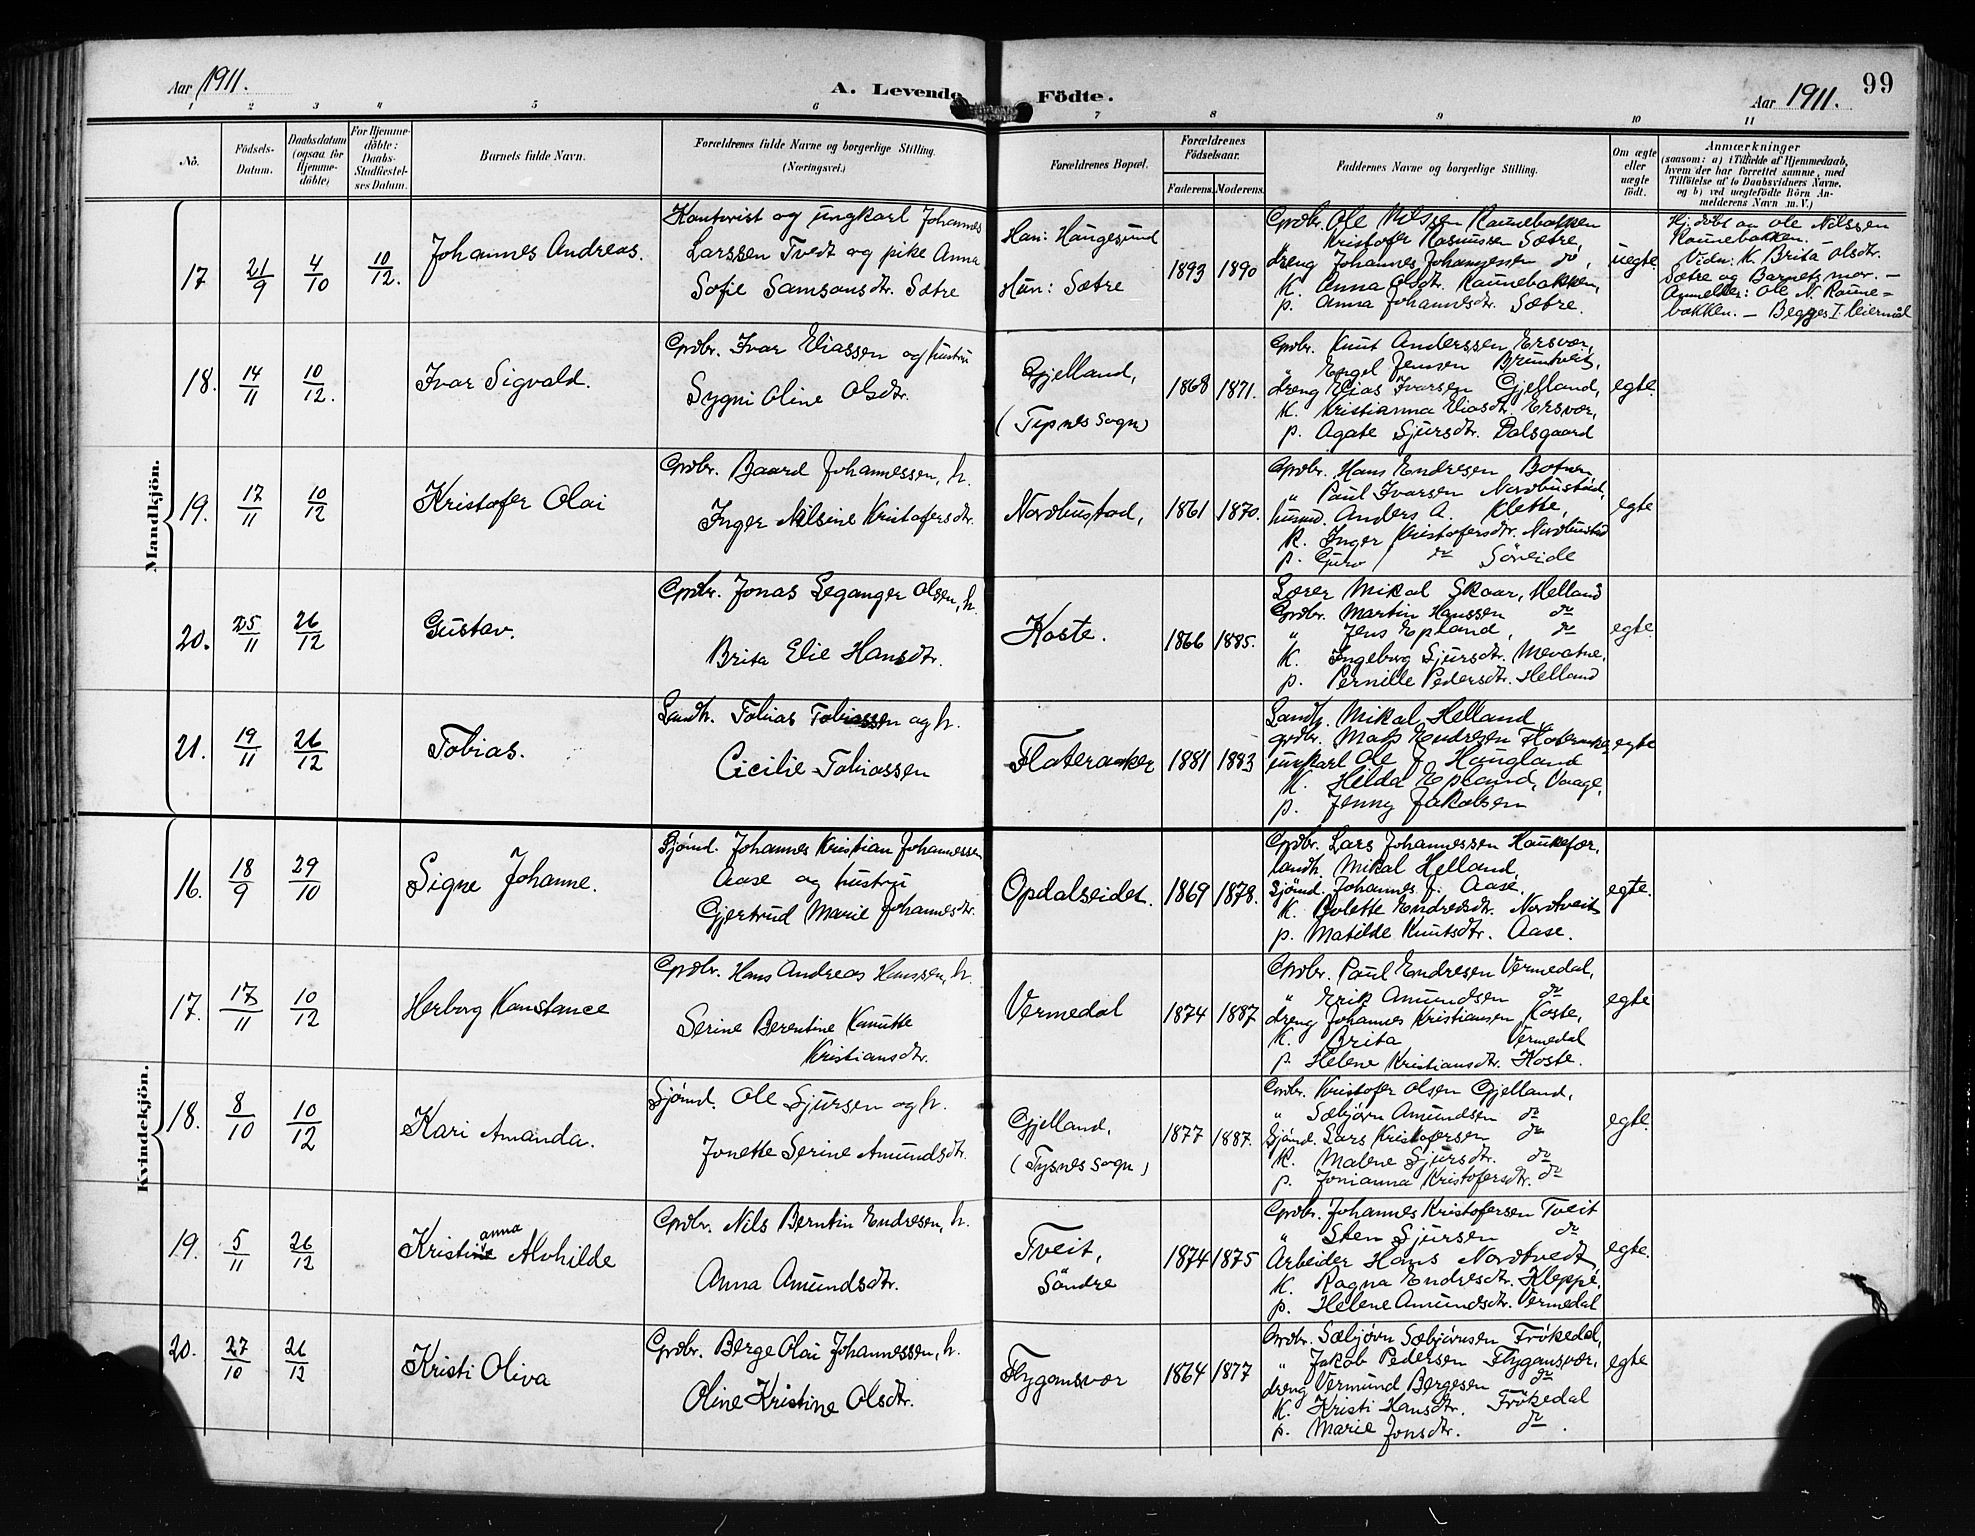 Aar 1911.
A. Levende Födte.
Aar 1911.
99
1 2 3 4 5 6 7 8 9 10 11
No.
Födsels-Datum.
Daabsdatum (ogsaa for Hjemme-döbte)
For Hjemme-döbte: Daabs-Stadfæstel-ses Datum.
Barnets fulde Navn.
Forældrenes fulde Navne og borgerlige Stilling. (Næringsvei.)
Forældrenes Bopæl.
Forældrenes Födselsaar.
Faderens. Moderens.
Faddernes Navne og borgerlige Stilling.
Om ægte eller uægte født.
Anmærkninger
(saasom: a) i Tilfælde af Hjemmedaab,
hvem der har forrettet samme, med
Tilföielse af to Daabsvidners Navne,
og b) ved uægtefödte Börn An-
melderens Navn m. V.)
Mandkjön.
17 21/9 4/10 10/12.
Johannes Andreas.
Kontorist og ungkarl Johannes
Larssen Tvedt og pike Anna
Sofie Samsonsdtr. Sætre
Han: Haugesund
Hun: Sætre
1893 1890
Grdbr. Ole Nilssen Raunebakken
Kristofer Rasmussen Sætre,
dreng Johannes Johannessen do,
K. Anna Olsdtr. Raunebakken,
p. Anna Johannesdtr. Sætre.
uegte.
Hj.döbt av Ole Nilssen
Raunebakken. –
Vidn: K. Brita Olsdtr.
Sætre og Barnets mor. –
Anmelder: Ole N. Raune=
bakken. – Begges I leiermål
18. 14/11 10/12.
Ivar Sigvald.
Grdbr. Ivar Eliassen og hustru
Sygni Oline Olsdtr.
Gjelland,
(Tysnes sogn)
1868 1871.
Grdbr. Knut Anderssen Ersvær,
" Engel Jensen Bruntveit,
dreng Elias Ivarsen Gjelland,
K. Kristianna Eliasdtr. Ersvær,
p. Agate Sjursdtr. Dalsgaard
egte.
19. 17/11 10/12
Kristofer Olai
Grdbr. Baard Johannessen, h.
Inger Nilsine Kristofersdtr.
Nordbustad,
1861 1870.
Grdbr. Hans Endresen Botnen
" Paul Ivarsen Nordbustad,
husmd. Anders A. Klette,
K. Inger Kristofersdtr. Nordbustad
p. Guro do Söreide
egte
20. 25/11 26/12
Gustav.
Grdbr. Jonas Leganger Olsen, h.
Brita Elie Hansdtr.
Koste.
1866 1885.
Lærer Mikal Skaar, Helland
Grdbr. Martin Hanssen do
" Jens Epland, do
K. Ingeborg Sjursdtr. Mevatne,
p. Pernille Pedersdtr. Helland
egte.
21. 19/11 26/12
Tobias.
Landh. Tobias Tobiassen og h.
Cicilie Tobiassen
Flateraaker
1881 1883
Landh. Mikal Helland,
grdbr. Mats Endresen Flateraaker
unkarl Ole J. Haugland
K. Hilda Epland, Vaage,
p. Jenny Jakobsen
egte
Kvindekjön.
16. 18/9 29/10
Signe Johanne.
Sjömd. Johannes Kristian Johannessen
Aase og hustru
Gjertrud Marie Johannesdtr.
Opdalseidet.
1869 1878.
Grdbr. Lars Johannessen Haukefær,
landh. Mikal Helland,
Sjömd. Johannes J. Aase,
K. Bolette Endresdtr. Nordtveit
p. Matilde Knutsdtr. Aase.
egte.
17. 17/11 10/12
Herborg Konstance
Grdbr. Hans Andreas Hanssen, h.
Serine Berentine Kanutte
Kristiansdtr.
Vermedal
1874 1887
Grdbr. Paul Endresen Vermedal,
" Erik Amundsen do
dreng Johannes Kristiansen, Koste,
K. Brita Vermedal
p. Helene Kristiansdtr. Koste.
egte
18. 8/10 10/12
Kari Amanda.
Sjömd. Ole Sjursen og h.
Jonette Serine Amundsdtr.
Gjelland,
(Tysnes sogn)
1877 1887.
Grdbr. Kristofer Olsen Gjelland,
" Sæbjörn Amundsen do
Sjömd. Lars Kristofersen do
K. Malene Sjursdtr. do
p. Jonianna Kristofersdtr. do
egte.
19. 5/11 26/12
anna
Kristine Alvhilde
Grdbr. Nils Berntin Endresen, h.
Anna Amundsdtr.
Tveit,
Söndre
1874 1875
Grdbr. Johannes Kristofersen Tveit
" Sten Sjursen do
Arbeider Hans Nordtvedt,
K. Ragna Endresdtr. Kleppe,
p. Helene Amundsdtr. Vermedal
egte.
20. 27/10 26/12
Kristi Oliva
Grdbr. Berge Olai Johannessen, h.
Oline Kristine Olsdtr.
Flygansvær
1864 1877
Grdbr. Sæbjörn Sæbjörnsen Frökedal,
" Jakob Pedersen Flygansvær,
dreng Vermund Bergesen do
K. Kristi Hansdtr. Frökedal
p. Marie Jonsdtr. do.
egte